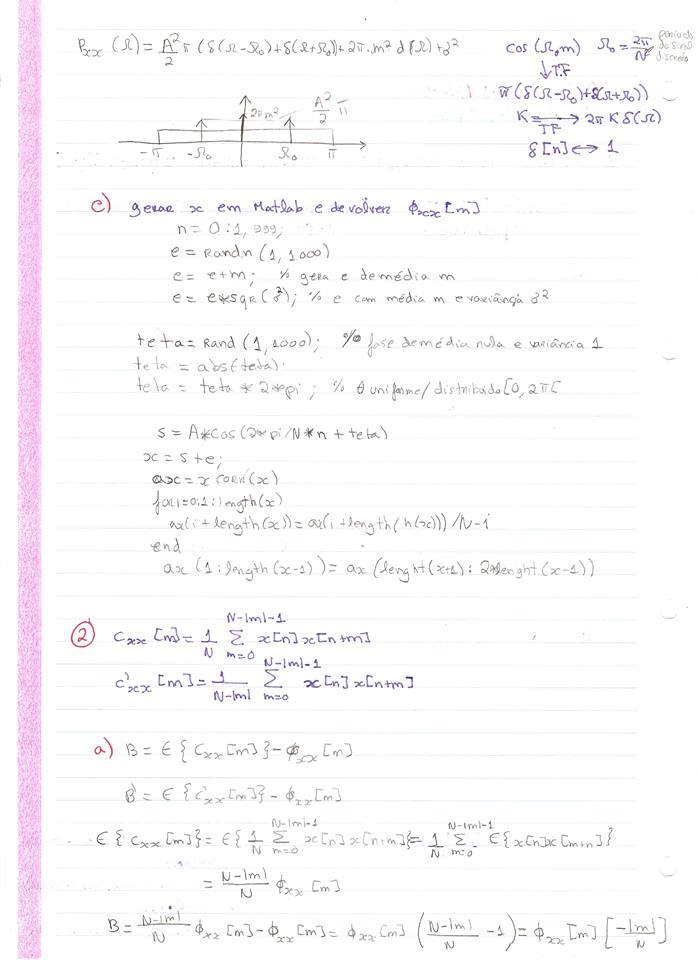 Pxx (Ω) = A²/2 π (δ(Ω-Ω₀)+δ(Ω+Ω₀))+2π.m² δ(Ω)+3²
cos(Ω₀m) Ω₀ = 2π/N período do sinal discreto
↓T.F
π(δ(Ω-Ω₀)+δ(Ω+Ω₀))
K → TF 2πKδ(Ω)
δ[n] ↔ 1
2πm² A²/2 π
-π -Ω₀ Ω₀ π
c) gerar x em Matlab e devolver ϕxx[m]
n = 0:1,999;
e = Randn (1,1000)
e = e+m; % gera e de média m
e = e*sqr(3²); % e com média m e variância 3²
teta = Rand (1,1000); % fase de média nula e variância 1
teta = abs(teta).
teta = teta * 2*pi ; % θ uniforme/ distribuido [0, 2π[
s = A*cos(2*pi/N*n + teta)
x = s+e;
ax = x corr(x)
for i=0:1:length(x)
ax(i+length(x)) = ax(i+length(h(x)))/N-i
end
ax (1:length(x-1)) = ax(lenght(x+1): 2*lenght(x-1))
② Cxx [m] = 1/N Σ m=0 N-|m|-1 x[n] x[n+m]
c'xx [m] = 1/N-|m| Σ m=0 N-|m|-1 x[n] x[n+m]
a) B = E{Cxx[m]} - ϕxx[m]
B' = E{c'xx[m]} - ϕxx[m]
E{Cxx[m]} = E{1/N Σ m=0 N-|m|-1 x[n] x[n+m]} = 1/N Σ m=0 N-|m|-1 E{x[n]x[m+n]}
= N-|m|/N ϕxx [m]
B = N-|m|/N ϕxx [m] - ϕxx [m] = ϕxx [m] (N-|m|/N -1) = ϕxx [m] [-|m|/N]